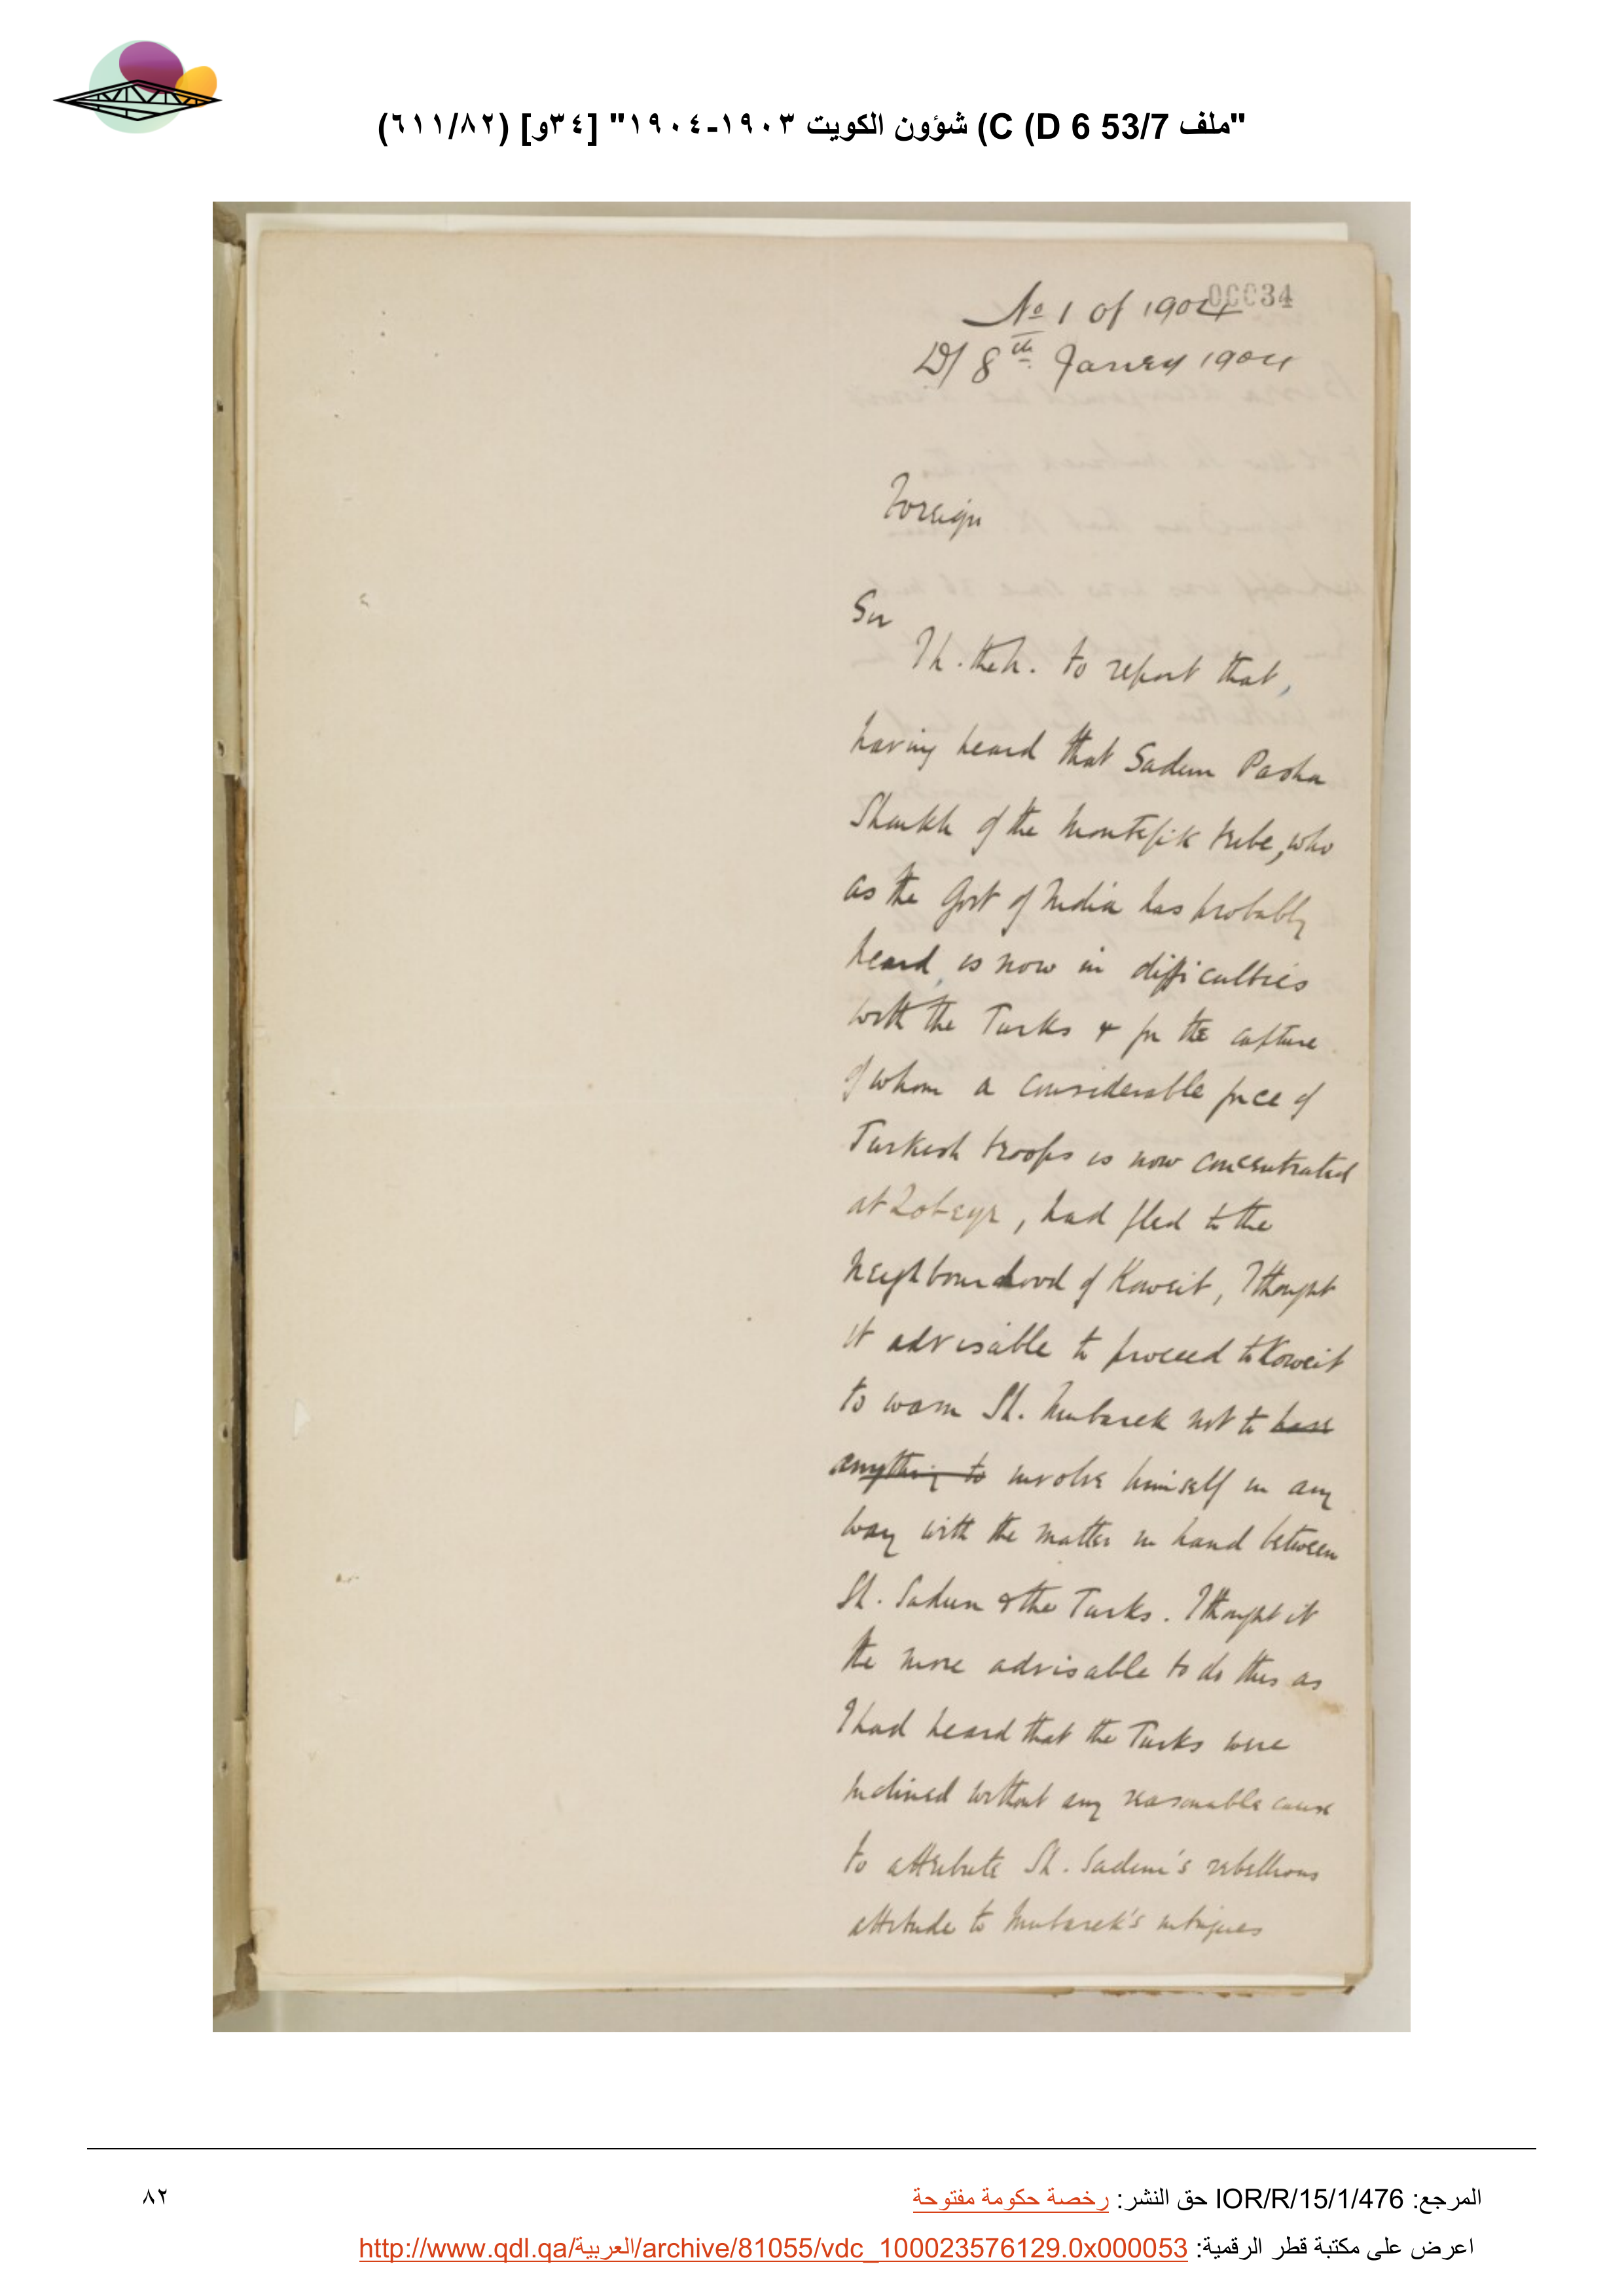 "ملف 53/7 D 6) C) شؤون الكويت ١٩٠٣-١٩٠٤" [٣٤و] (٦١١/٨٢)
00034
No 1 of 1904
D/ 8th Janry 1904
Foreign
Sir
I h. the h. to report that,
having heard that Sadun Pasha
Shaikh of the Montefik tribe, who
as the Govt of India has probably
heard, is now in difficulties
with the Turks & for the capture
of whom a considerable force of
Turkish troops is now concentrated
at Zobeyr, had fled to the
neighbourhood of Koweit, I thought
it advisable to proceed to Koweit
to warn Sh. Mubarek not to have
anything to involve himself in any
way with the matter in hand between
Sh. Sadun & the Turks. I thought it
the more advisable to do this as
I had heard that the Turks were
inclined without any reasonable cause
to attribute Sh. Sadun's rebellious
attitude to Mubarek's intrigues
المرجع: IOR/R/15/1/476 حق النشر: رخصة حكومة مفتوحة
٨٢
اعرض على مكتبة قطر الرقمية: http://www.qdl.qa/العربية/archive/81055/vdc_100023576129.0x000053